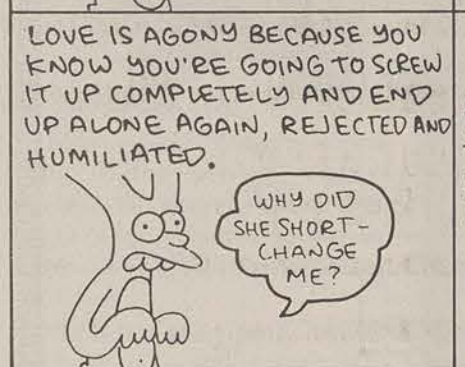 LOVE IS AGONY BECAUSE YOU
KNOW YOU'RE GOING TO SCREW
IT UP COMPLETELY AND END
UP ALONE AGAIN, REJECTED AND
HUMILIATED.
WHY DID
SHE SHORT-
CHANGE
ME?